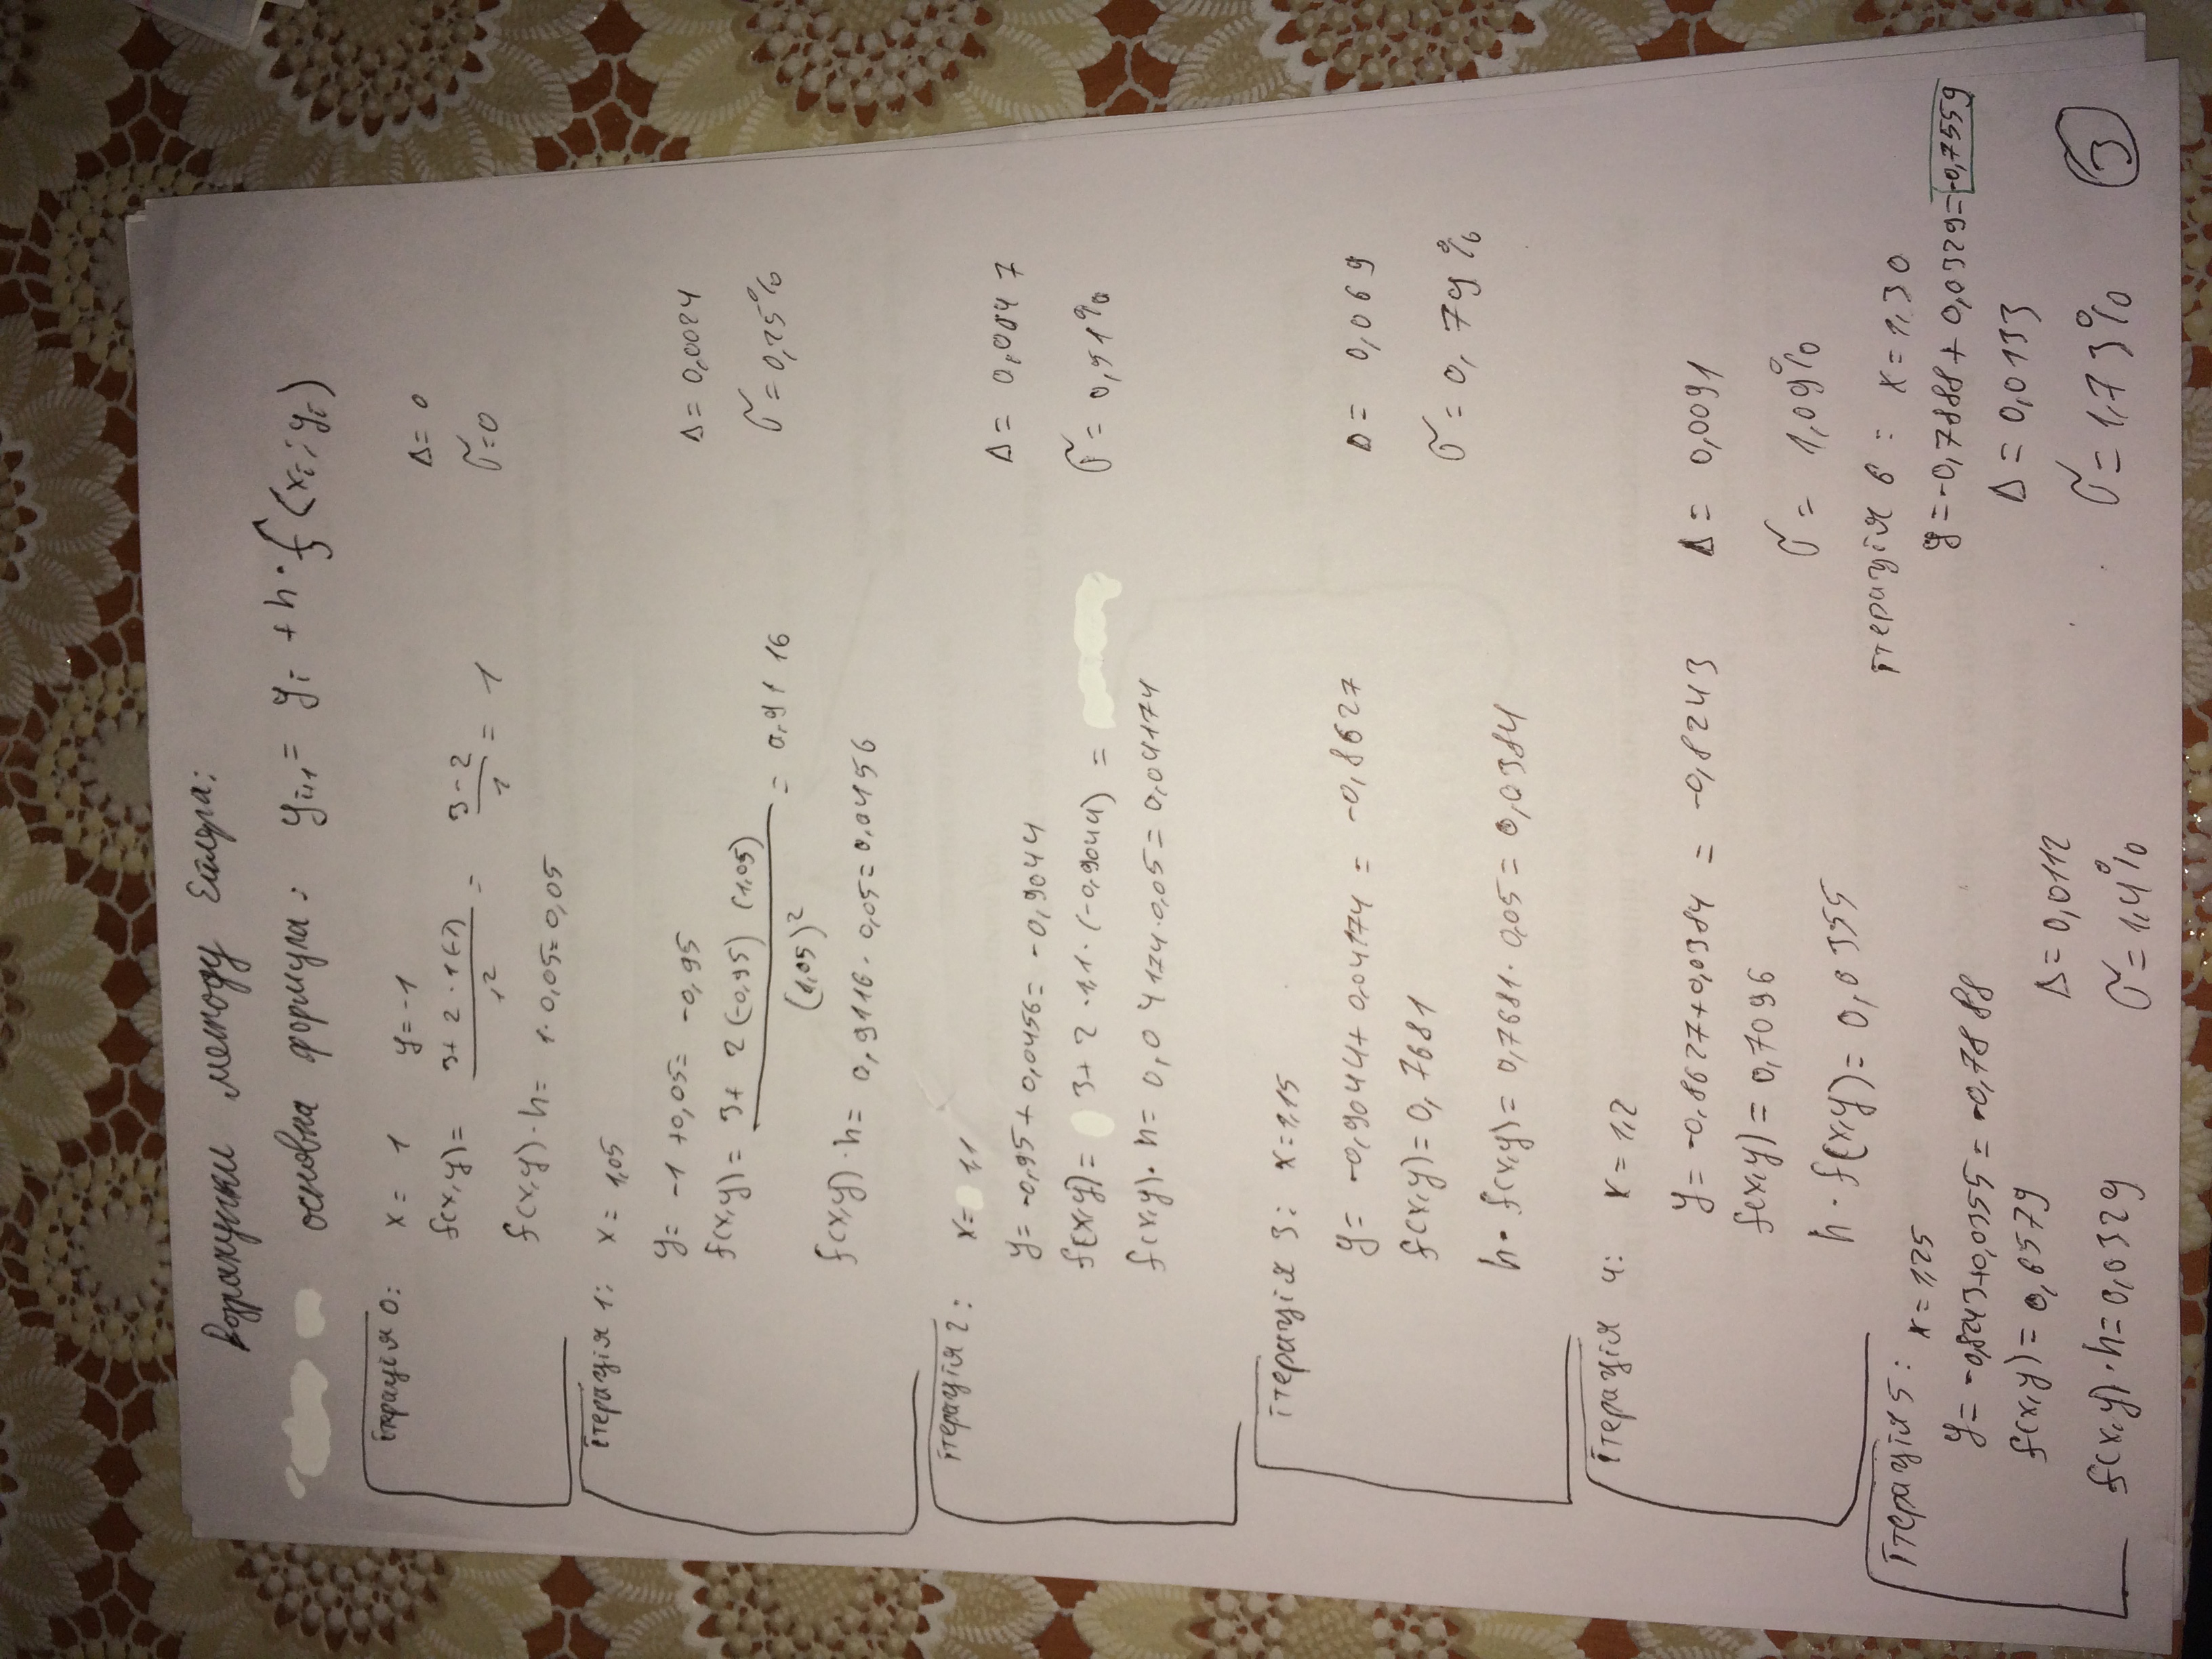 Розрахунки методу Ейлера:
основна формула: yᵢ₊₁ = yᵢ + h · f(xᵢ; yᵢ)
ітерація 0: x = 1 y = -1
f(x,y) = (3 + 2 · 1(-1)) / 1² = (3 - 2) / 1 = 1
f(x,y) · h = 1 · 0,05 = 0,05
Δ = 0
σ = 0
ітерація 1: x = 1,05
y = -1 + 0,05 = -0,95
f(x,y) = (3 + 2 (-0,95) (1,05)) / (1,05)² = 0,9116
f(x,y) · h = 0,9116 · 0,05 = 0,0456
Δ = 0,0024
σ = 0,25%
ітерація 2: x = 1,1
y = -0,95 + 0,0456 = -0,9044
f(x,y) = 3 + 2 · 1,1 · (-0,9044) =
f(x,y) · h = 0,04174 · 0,05 = 0,04174
Δ = 0,0047
σ = 0,51%
ітерація 3: x = 1,15
y = -0,9044 + 0,04174 = -0,8627
f(x,y) = 0,7681
h · f(x,y) = 0,7681 · 0,05 = 0,0384
Δ = 0,069
σ = 0,79%
ітерація 4: x = 1,2
y = -0,8627 + 0,0384 = -0,8243
f(x,y) = 0,7096
h · f(x,y) = 0,0355
Δ = 0,0091
σ = 1,09%
ітерація 5: x = 1,25
y = -0,8243 + 0,0355 = -0,7888
f(x,y) = 0,6579
f(x,y) · h = 0,0329
Δ = 0,0112
σ = 1,4%
ітерація 6: x = 1,30
y = -0,7888 + 0,0329 = -0,7559
Δ = 0,0133
σ = 1,73%
3